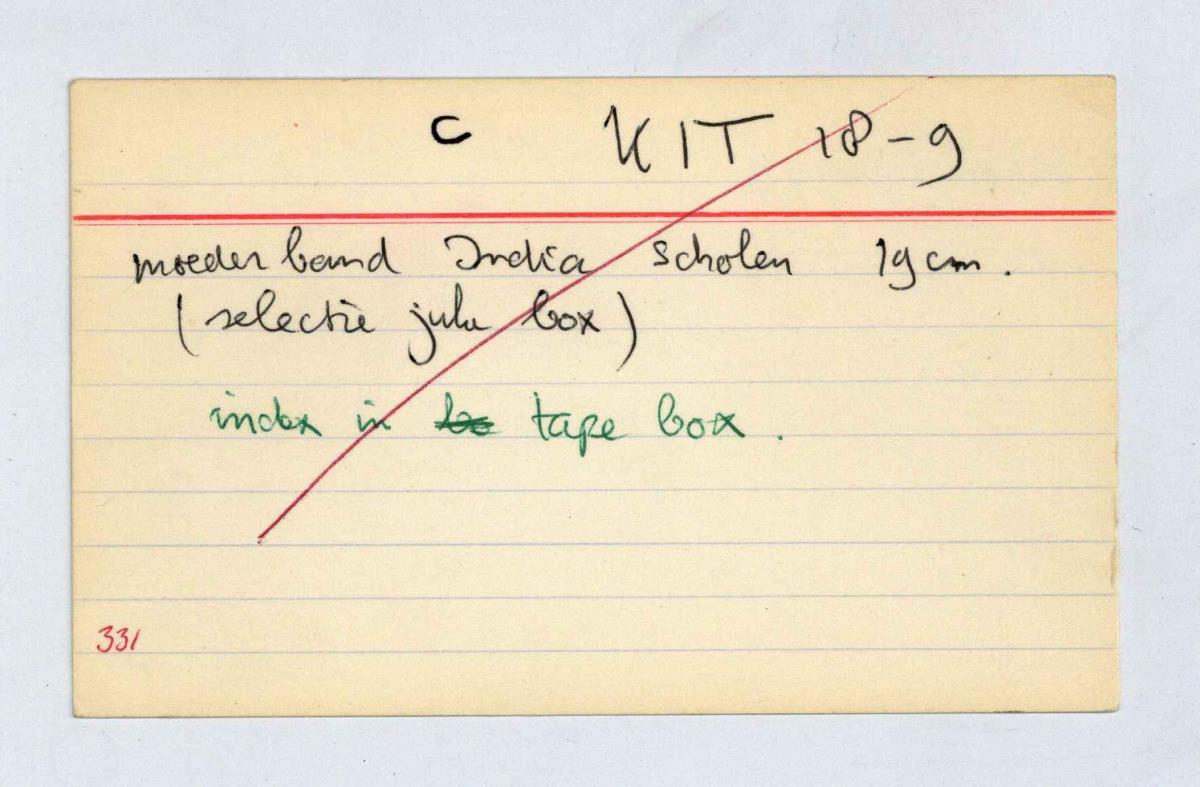 C KIT 18-9
moederband India scholen 19 cm.
(selectie juke box)
index in tape box.
331